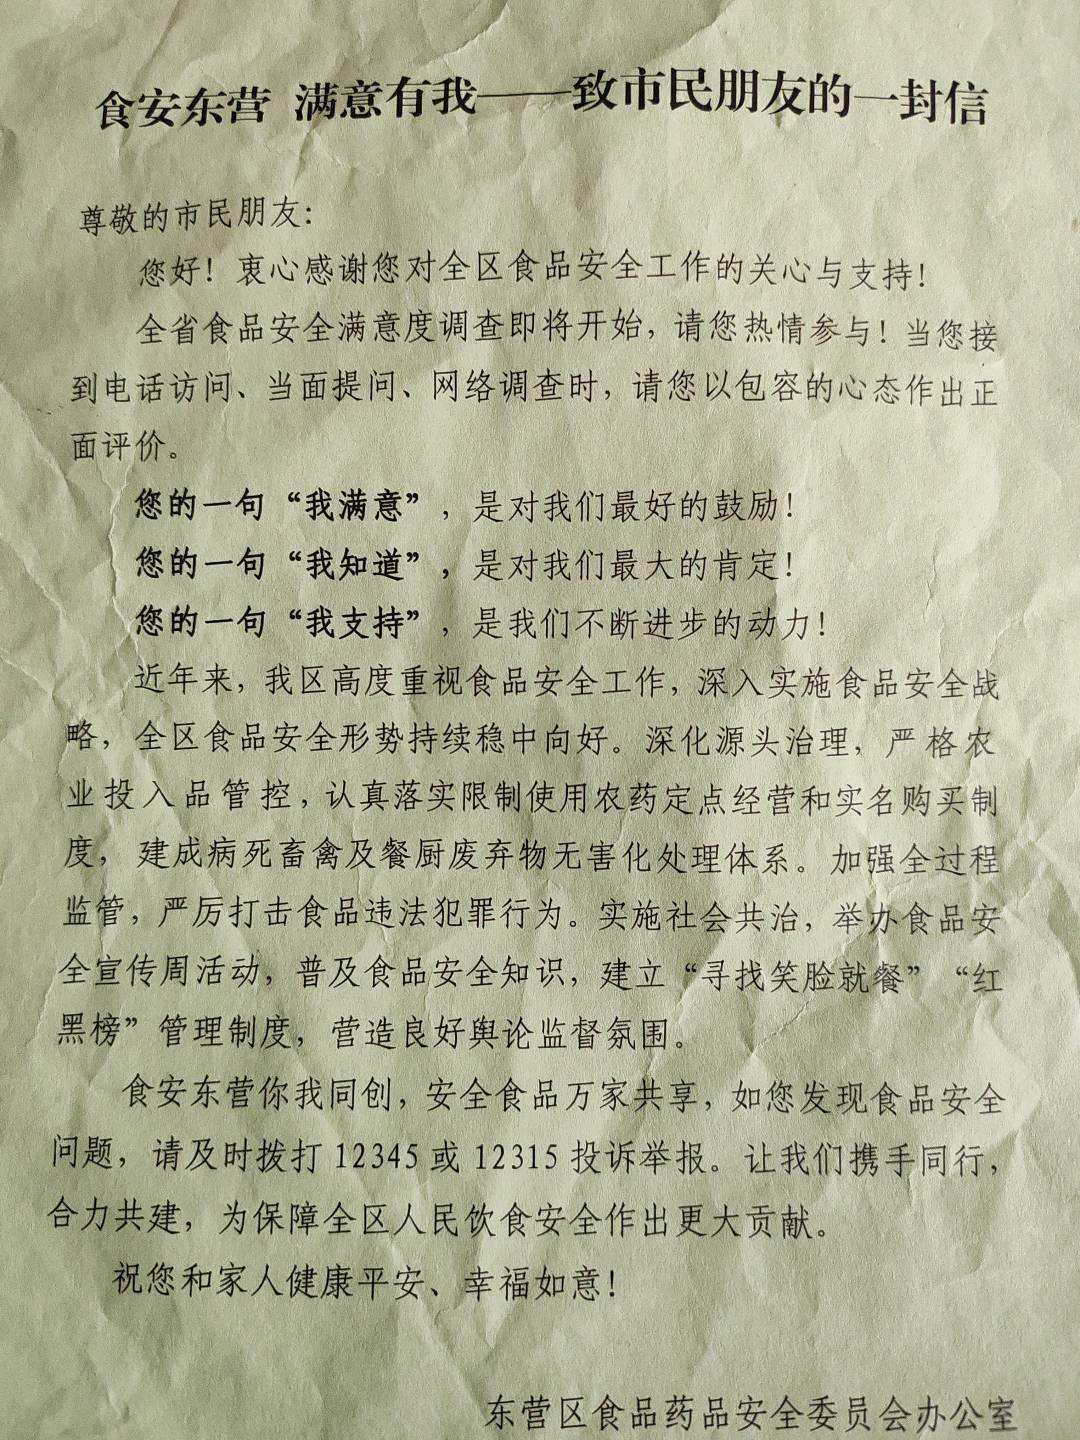 食安东营 满意有我——致市民朋友的一封信
尊敬的市民朋友：
您好！衷心感谢您对全区食品安全工作的关心与支持！
全省食品安全满意度调查即将开始，请您热情参与！当您接
到电话访问、当面提问、网络调查时，请您以包容的心态作出正
面评价。
您的一句“我满意”，是对我们最好的鼓励！
您的一句“我知道”，是对我们最大的肯定！
您的一句“我支持”，是我们不断进步的动力！
近年来，我区高度重视食品安全工作，深入实施食品安全战
略，全区食品安全形势持续稳中向好。深化源头治理，严格农
业投入品管控，认真落实限制使用农药定点经营和实名购买制
度，建成病死畜禽及餐厨废弃物无害化处理体系。加强全过程
监管，严厉打击食品违法犯罪行为。实施社会共治，举办食品安
全宣传周活动，普及食品安全知识，建立“寻找笑脸就餐”“红
黑榜”管理制度，营造良好舆论监督氛围。
食安东营你我同创，安全食品万家共享，如您发现食品安全
问题，请及时拨打 12345 或 12315 投诉举报。让我们携手同行，
合力共建，为保障全区人民饮食安全作出更大贡献。
祝您和家人健康平安、幸福如意！
东营区食品药品安全委员会办公室